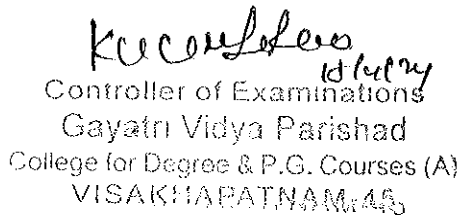 Controller of Examinations
Gayatri Vidya Parishad
College for Degree & P.G. Courses (A)
VISAKHAPATNAM-45